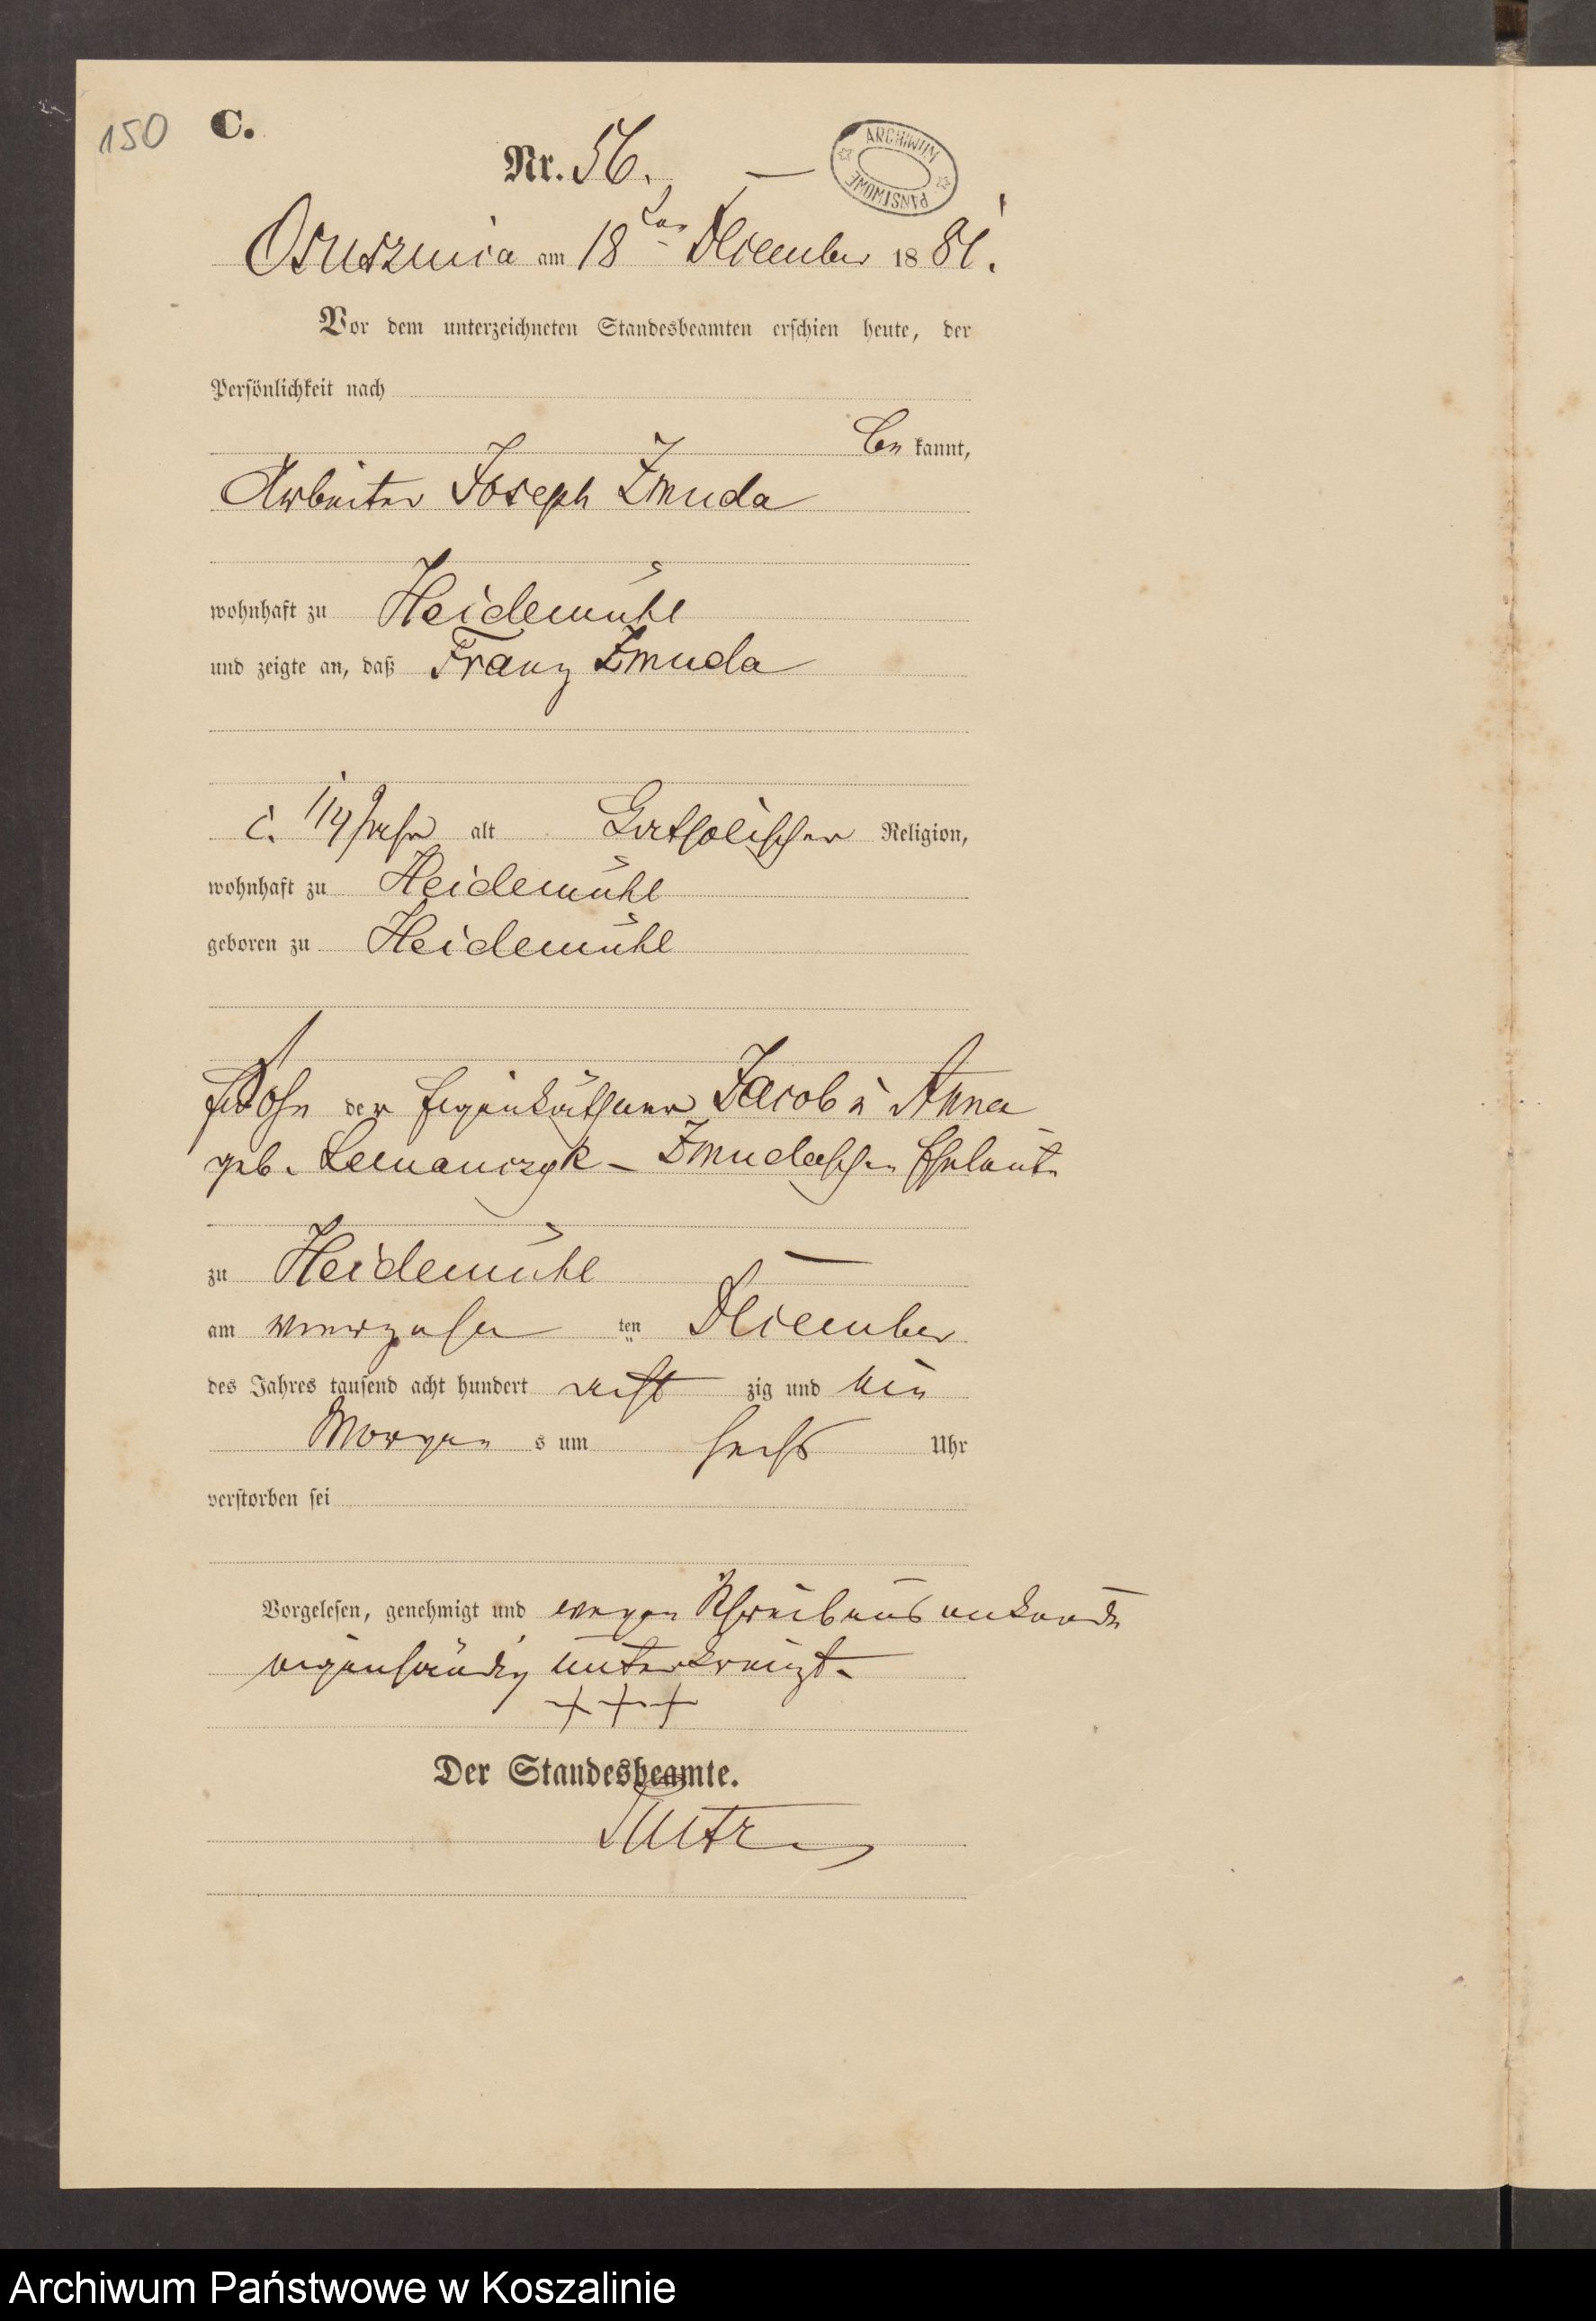 150
C.
Nr. 56.
ARCHIWUM PAŃSTWOWE
Osusznica am 18ten December 1881.
Vor dem unterzeichneten Standesbeamten erschien heute, der
Persönlichkeit nach
be kannt,
Arbeiter Joseph Zmuda
wohnhaft zu Heidemühl
und zeigte an, daß Franz Zmuda
1/4 Jahr alt Katholischer Religion,
wohnhaft zu Heidemühl
geboren zu Heidemühl
Sohn der Eigenkäthner Jacob u Anna
geb. Lemanczyk - Zmudaschen Eheleute
zu Heidemühl
am vierzehn ten December
des Jahres tausend acht hundert acht zig und ein
Morgen s um sechs Uhr
verstorben sei
Vorgelesen, genehmigt und wegen Schreibensunkunde
eigenhändig unterkreuzt.
+++
Der Standesbeamte.
Archiwum Państwowe w Koszalinie